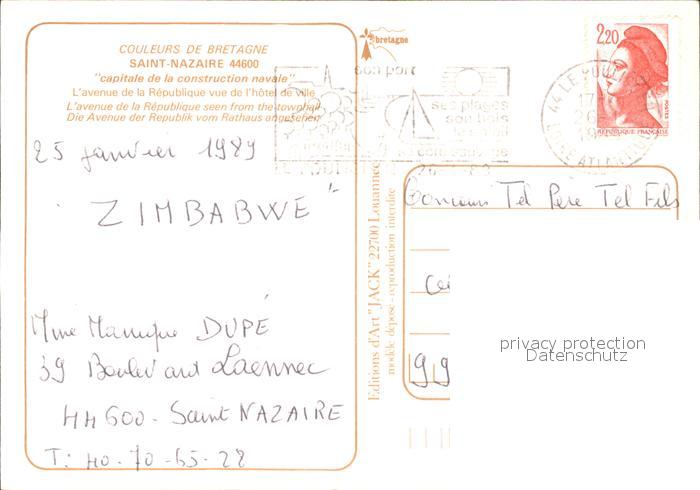 COULEURS DE BRETAGNE
SAINT-NAZAIRE 44600
"capitale de la construction navale"
L'avenue de la République vue de l'hôtel de ville
L'avenue de la République seen from the townhall
Die Avenue der Republik vom Rathaus angesehen
25 janvier 1989
"ZIMBABWE"
Mme DUPÉ
39 Boulevard Laënnec
44600 - Saint NAZAIRE
T: 40-70-65-28
Editions d'Art "JACK" 22700 Louannec
modèle déposé - reproduction interdite
bretagne
son port
ses plages
son bois
2,20
POSTES
RÉPUBLIQUE FRANÇAISE
44 LE
Concours Tel Père Tel Fils
99
privacy protection
Datenschutz